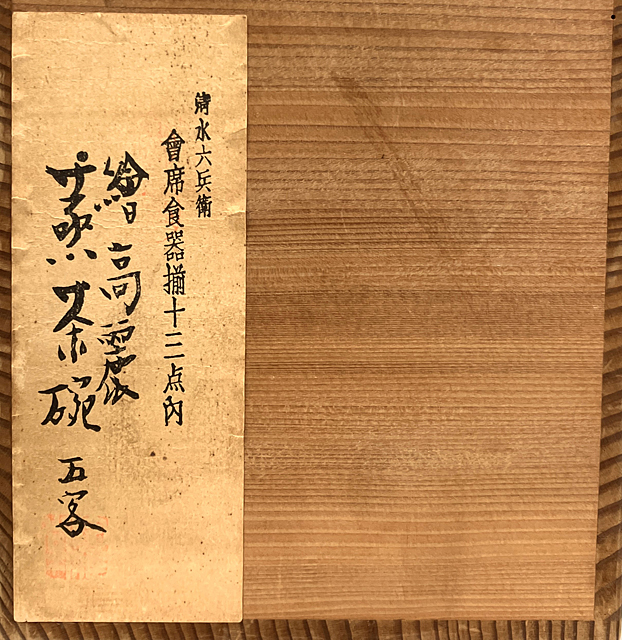 清水六兵衛
會席食器揃十三点内
繪高麗
蒸茶碗 五客